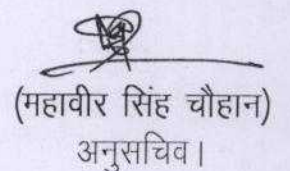 (महावीर सिंह चौहान)
अनुसचिव।